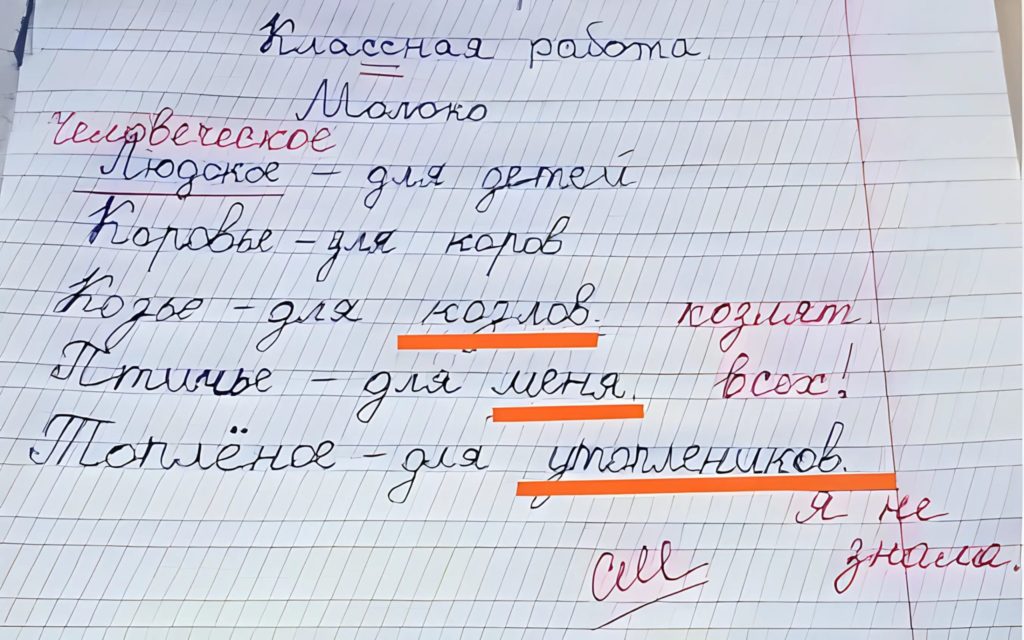 Классная работа.
Молоко
человеческое
Людское – для детей
Коровье – для коров
Козье – для козлов. козлят.
Птичье – для меня. всех!
Топлёное – для утоплеников.
я не
знала.
см